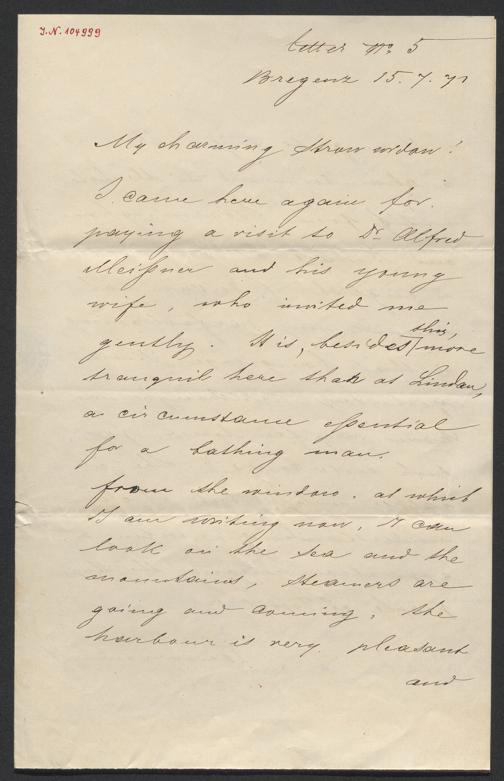 J.N. 104999
letter No 5
Bregenz 15. 7. 71
My charming Straw widow!
I came here again for.
paying a visit to Dr Alfred
Meißner and his young
wife, who invited me
gently. It is, besides this, more
tranquil here than at Lindau,
a circumstance eßential
for a bathing man.
from the window, at which
I am writing now, I can
look on the sea and the
mountains, steamers are
going and coming, the
harbour is very pleasant
and